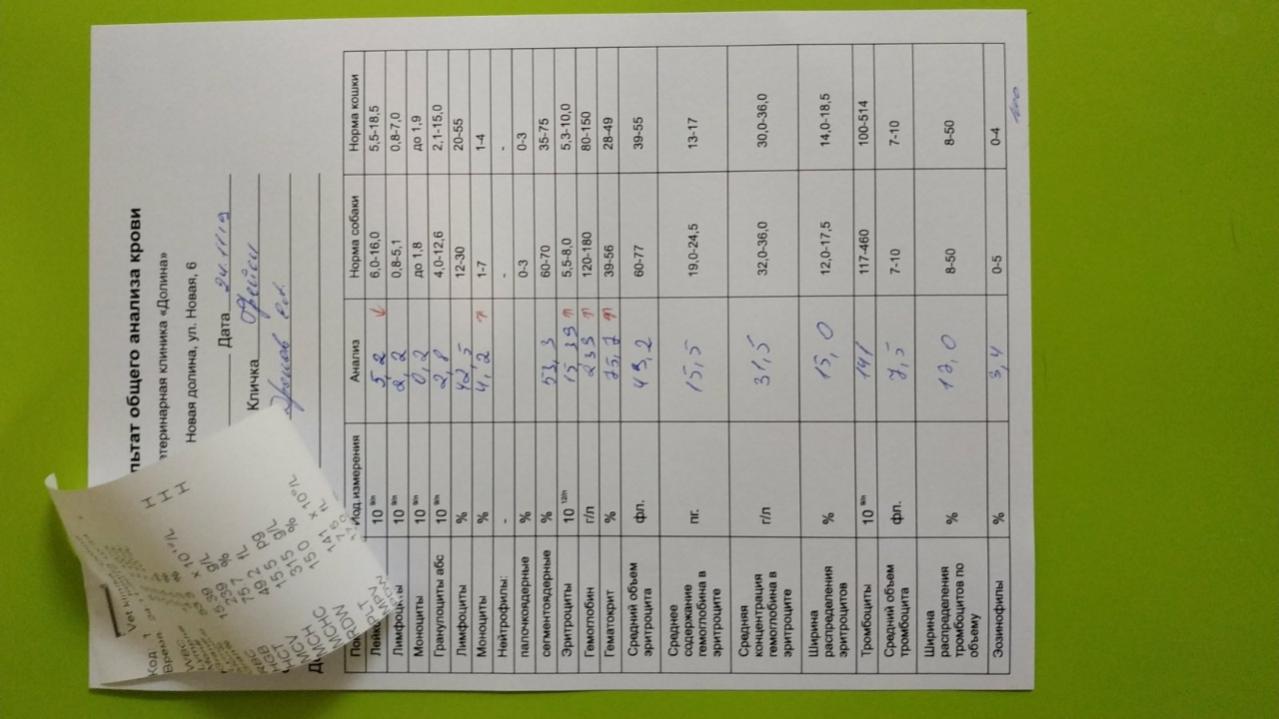 льтат общего анализа крови
етеринарная клиника «Долина»
Новая долина, ул. Новая, 6
Дата 24.11.19
Кличка
Код измерения Анализ Норма собаки Норма кошки
10 9/л 5,2 ↓ 6,0-16,0 5,5-18,5
Лимфоциты 10 9/л 2,2 0,8-5,1 0,8-7,0
Моноциты 10 9/л 0,2 до 1,8 до 1,9
Гранулоциты абс 10 9/л 2,8 4,0-12,6 2,1-15,0
Лимфоциты % 42,5 12-30 20-55
Моноциты % 4,2 ↑ 1-7 1-4
Нейтрофилы: - - -
палочкоядерные % 0-3 0-3
сегментоядерные % 53,3 60-70 35-75
Эритроциты 10 12/л 15,39 ↑ 5,5-8,0 5,3-10,0
Гемоглобин г/л 239 ↑ 120-180 80-150
Гематокрит % 75,7 ↑ 39-56 28-49
Средний объем эритроцита фл. 49,2 60-77 39-55
Среднее содержание гемоглобина в эритроците пг. 15,5 19,0-24,5 13-17
Средняя концентрация гемоглобина в эритроците г/л 31,5 32,0-36,0 30,0-36,0
Ширина распределения эритроцитов % 15,0 12,0-17,5 14,0-18,5
Тромбоциты 10 9/л 141 117-460 100-514
Средний объем тромбоцита фл. 7,5 7-10 7-10
Ширина распределения тромбоцитов по объему % 17,0 8-50 8-50
Эозинофилы % 3,4 0-5 0-4
Код
Время
WBC
RBC 15 39 × 10¹²/L H
HGB 239 g/L H
HCT 75 7 % H
MCV 49 2 fL
MCH 15 5 pg
MCHC 315 g/L
RDW 15 0 %
PLT 141 × 10⁹/L
MPV
PDW